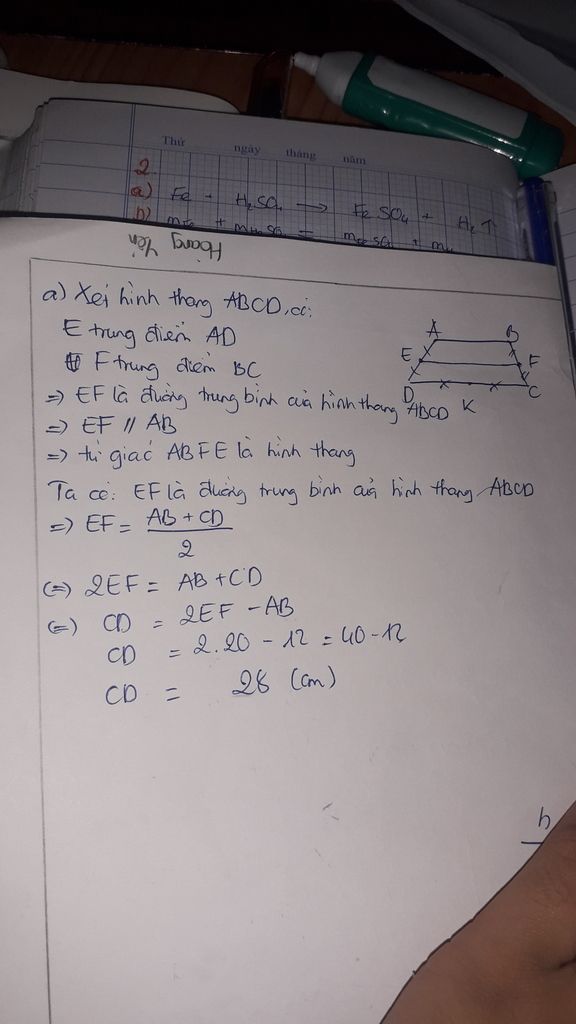 Thứ ngày tháng năm
2
a) Fe + H₂SO₄ → FeSO₄ + H₂↑
b)
Hoàng Yến
a) Xét hình thang ABCD, có:
E trung điểm AD
F trung điểm BC
=> EF là đường trung bình của hình thang ABCD
=> EF // AB
=> tứ giác ABFE là hình thang
Ta có: EF là đường trung bình của hình thang ABCD
=> EF = AB + CD
2
(=) 2EF = AB + CD
(=) CD = 2EF - AB
CD = 2.20 - 12 = 40 - 12
CD = 28 (cm)
A B
E F
D K C
h